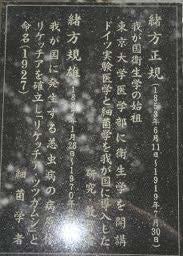 緒方正規(1853年6月11日〜1919年7月30日)
我が国衛生学の始祖
東京大学医学部に衛生学を開講
ドイツ実験医学と細菌学を我が国に導入した
研究
緒方規雄(年1月28日〜1970年
我が国に発生する恙虫病の病
リケッチアを確立しリケッチア・ツツガムシと
命名(1927) 細菌学者